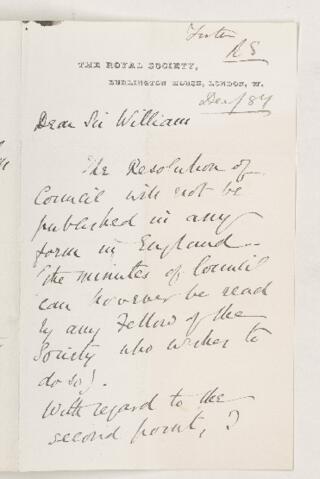 Foster
RS
THE ROYAL SOCIETY,
BURLINGTON HOUSE, LONDON, W.
Dec/84
Dear Sir William
The Resolution of
Council will not be
published in any
form in England.
(The minutes of Council
can however be read
by any Fellow of the
Society who wishes to
do so).
With regard to the
second point, I